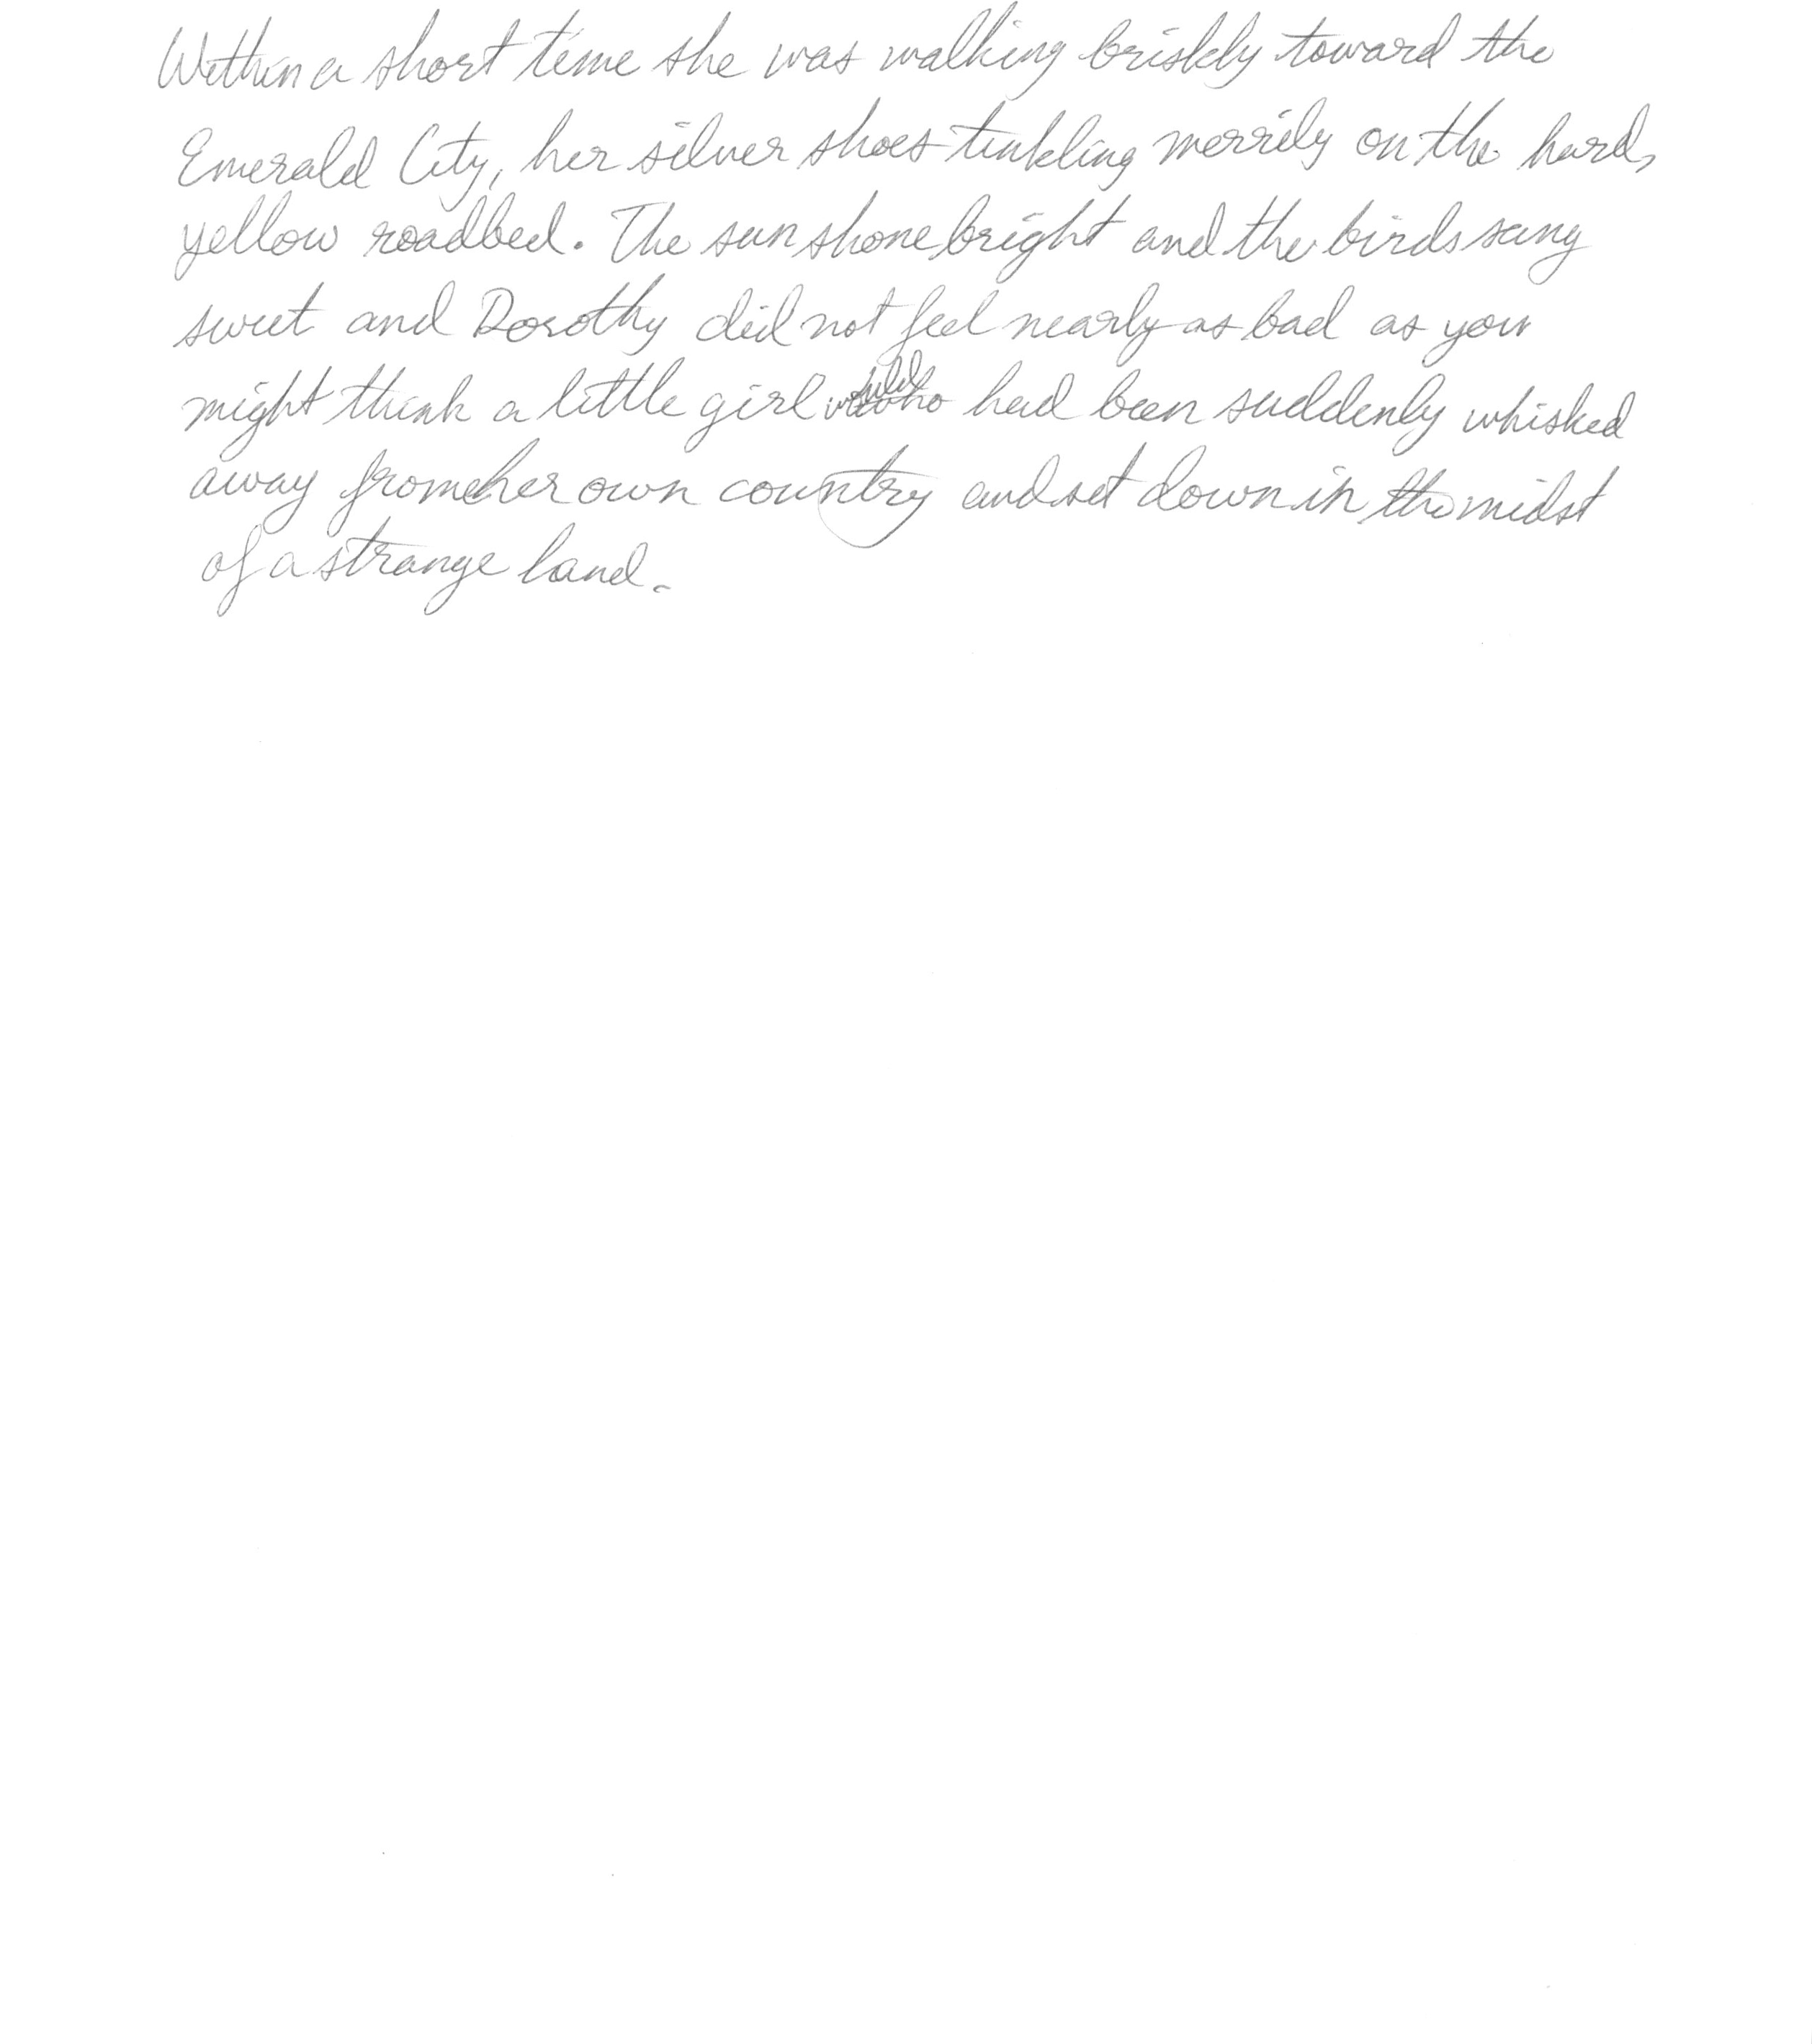 Within a short time she was walking briskly toward the
Emerald City, her silver shoes tinkling merrily on the hard,
yellow roadbed. The sun shone bright and the birds sang
sweet and Dorothy did not feel nearly as bad as you
might think a little girl who had been suddenly whisked
away from her own country and set down in the midst
of a strange land.